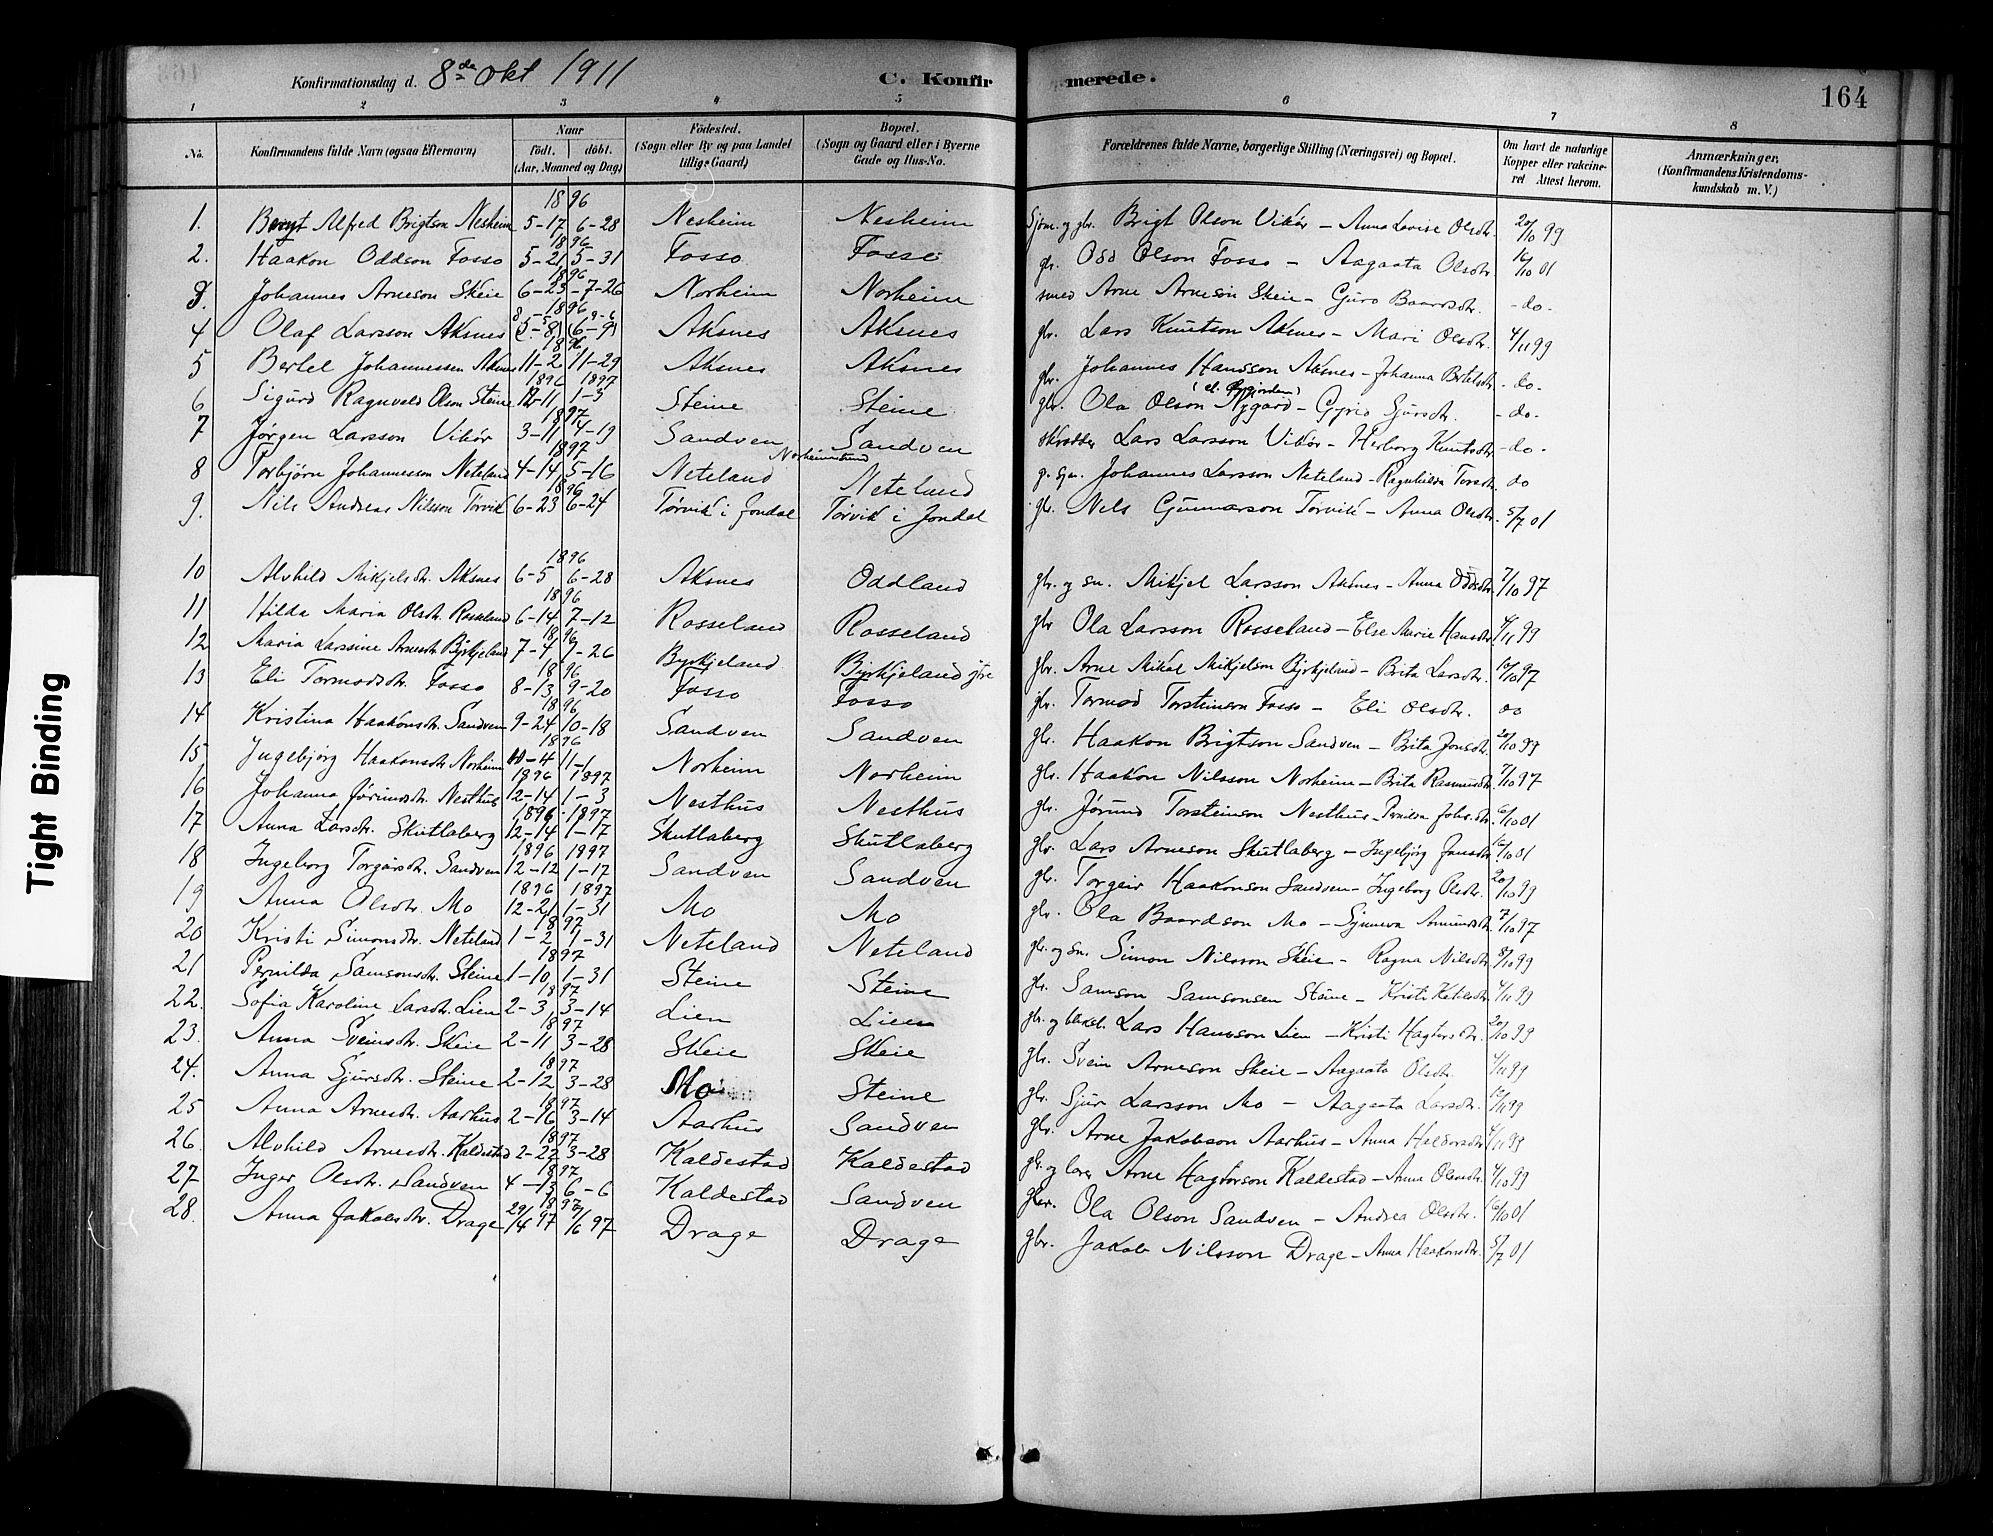 Konfirmationsdag d. 8de Okt 1911 C. Konfirmerede. 164
1 2 3 4 5 6 7 8
No. Konfirmandens fulde Navn (ogsaa Efternavn) Naar födt. döbt. (Aar, Maaned og Dag) Födested. (Sogn eller By og paa Landet tillige Gaard) Bopæl. (Sogn og Gaard eller i Byerne Gade og Hus-No. Forældrenes fulde Navne, borgerlige Stilling (Næringsvei) og Bopæl. Om havt de naturlige Kopper eller vakcineret Attest herom. Anmærkninger, (Konfirmandens Kristendomskundskab m. V.)
1896
1. Alfred Brigtson Nesheim 5-17 6-28 Nesheim Nesheim Sjøm. og gbr. Brigt Olson Vikør – Anna Lovise Olsdtr. 20/10 99
1896
2. Haakon Oddson Fosso 5-21 5-31 Fosso Fosse gbr. Odd Olson Fosso – Aagaata Olsdtr. 16/10 01
1896
3. Johannes Arneson Skeie 6-23 -7-26 Norheim Norheim smed Arne Arneson Skeie – Guro Baardsdtr. - do -
1896
4 Olaf Larsson Aksnes Aksnes Aksnes gbr. Lars Knutson Aksnes – Mari Olsdtr. 4/11 99
1896
5 Bertel Johannessen Aksnes 11-2 11-29 Aksnes Aksnes gbr. Johannes Hansson Aksnes – Johanna Bertelsdtr. - do -
1896 1897
6 Sigurd Ragnvald Olson Steine 12-11 1-3 Steine Steine gbr. Ola Olson Nygard – Gyrid Sjursdtr. - do -
1897
7 Jørgen Larsson Vikør 3-11 4-19 Sandven Norheimsund Sandven skrædder Lars Larsson Vikør – Herborg Knutsdtr. - do -
1897
8 Torbjörn Johannesson Neteland 4-14 5-16 Neteland Neteland Johannes Larsson Neteland – Ragnhilda Torsdtr. do
1896
9. Nils Andreas Nilsson Torvik 6-23 6-24 Törvik i Jondal Törvik i Jondal gbr. Nels Gunnarson Torvik – Anna Olsdtr. 5/7 01
1896
10 Alvhild Mikjelsdtr. Aksnes 6-5 6-28 Aksnes Oddland gbr. og sn. Mikjel Larsson Aksnes – Anna Oddsdtr. 7/10 97
1896
11 Hilda Maria Olsdtr. Rosseland 6-14 7-12 Rosseland Rosseland gbr Ola Larsson Rosseland – Else Marie Hansdtr. 4/11 99
1896
12 Maria Larsine Arnesdtr. Byrkjeland 7-4 7-26 Byrkjeland Byrkjeland gbr. Arne Mikal Mikjelson Byrkjeland – Brita Larsdtr. 10/10 97
1896
13 Eli Tormodsdtr. Fosso 8-13 9-20 Fosso Fosso gbr. Tormod Torsteinson Fosso – Eli Olsdtr. do
1896
14 Kristina Haakonsdtr. Sandven 9-24 10-18 Sandven Sandven gbr. Haakon Brigtson Sandven – Brita Jonsdtr. 20/10 99
1896
15 Ingebjörg Haakonsdtr. Norheim 10-4 11-1 Norheim Norheim gbr. Haakon Nilsson Norheim – Brita Rasmusdtr. 7/10 97
1896 1897
16 Johanna Jørundsdtr. Nesthus 12-14 1-3 Nesthus Nesthus gbr. Jørund Torsteinson Nesthus – Pernilda Johs.dtr. 6/10 01
1896 1897
17 Anna Larsdtr. Skutlaberg 12-14 1-17 Skutlaberg Skutlaberg gbr. Lars Arneson Skutlaberg – Ingebjörg Jonsdtr. 16/10 01
1896 1997
18 Ingeborg Torgeirsdtr. Sandven 12-12 1-17 Sandven Sandven gbr. Torgeir Haakonson Sandven – Ingeborg Olsdtr. 20/10 99
1896 1897
19 Anna Olsdtr. Mo 12-21 1-31 Mo Mo gbr. Ola Baardson Mo – Synneva Amundsdtr. 7/10 97
1897
20 Kristi Simonsdtr. Neteland 1-2 1-31 Neteland Neteland gbr. og sn. Simon Nilsson Skeie – Ragna Nilsdtr. 8/10 99
1897
21 Pernilda Samsonsdtr. Steine 1-10 1-31 Steine Steine gbr. Samson Samsonsen Steine – Kristi Ketilsdtr. 4/11 99
1897
22. Sofia Karoline Larsdtr. Lien 2-3 3-14 Lien Lien gbr. og Lars Hansson Lien – Kristi Hagtorsdtr. 20/10 99
1897
23. Anna Sveinsdtr. Skeie 2-11 3-28 Skeie Skeie gbr. Svein Arneson Skeie – Aagaata Olsdtr. 4/11 99
1897
24. Anna Sjursdtr. Steine 2-12 3-28 Mo Steine gbr. Sjur Larsson Mo – Aagaata Larsdtr. /11 99
1897
25 Anna Arnesdtr. Aarhus 2-16 3-14 Aarhus Sandven gbr. Arne Jakobson Aarhus – Anna Haldorsdtr. 4/11 99
1897
26. Alvhild Arnesdtr. Kaldestad 2-22 3-28 Kaldestad Kaldestad gbr. og lærer Arne Hagtorson Kaldestad – Anna Olsdtr. 4/10 99
1897
27 Inger Olsdtr. Sandven 4-13 6-6 Kaldestad Sandven gbr. Ola Olson Sandven – Andrea Olsdtr. 16/10 01
1897
28. Anna Jakobsdtr. Drage 29/4 97 7/6 97 Drage Drage gbr. Jakob Nilsson Drage – Anna Haakonsdtr. 5/7 01
Tight Binding